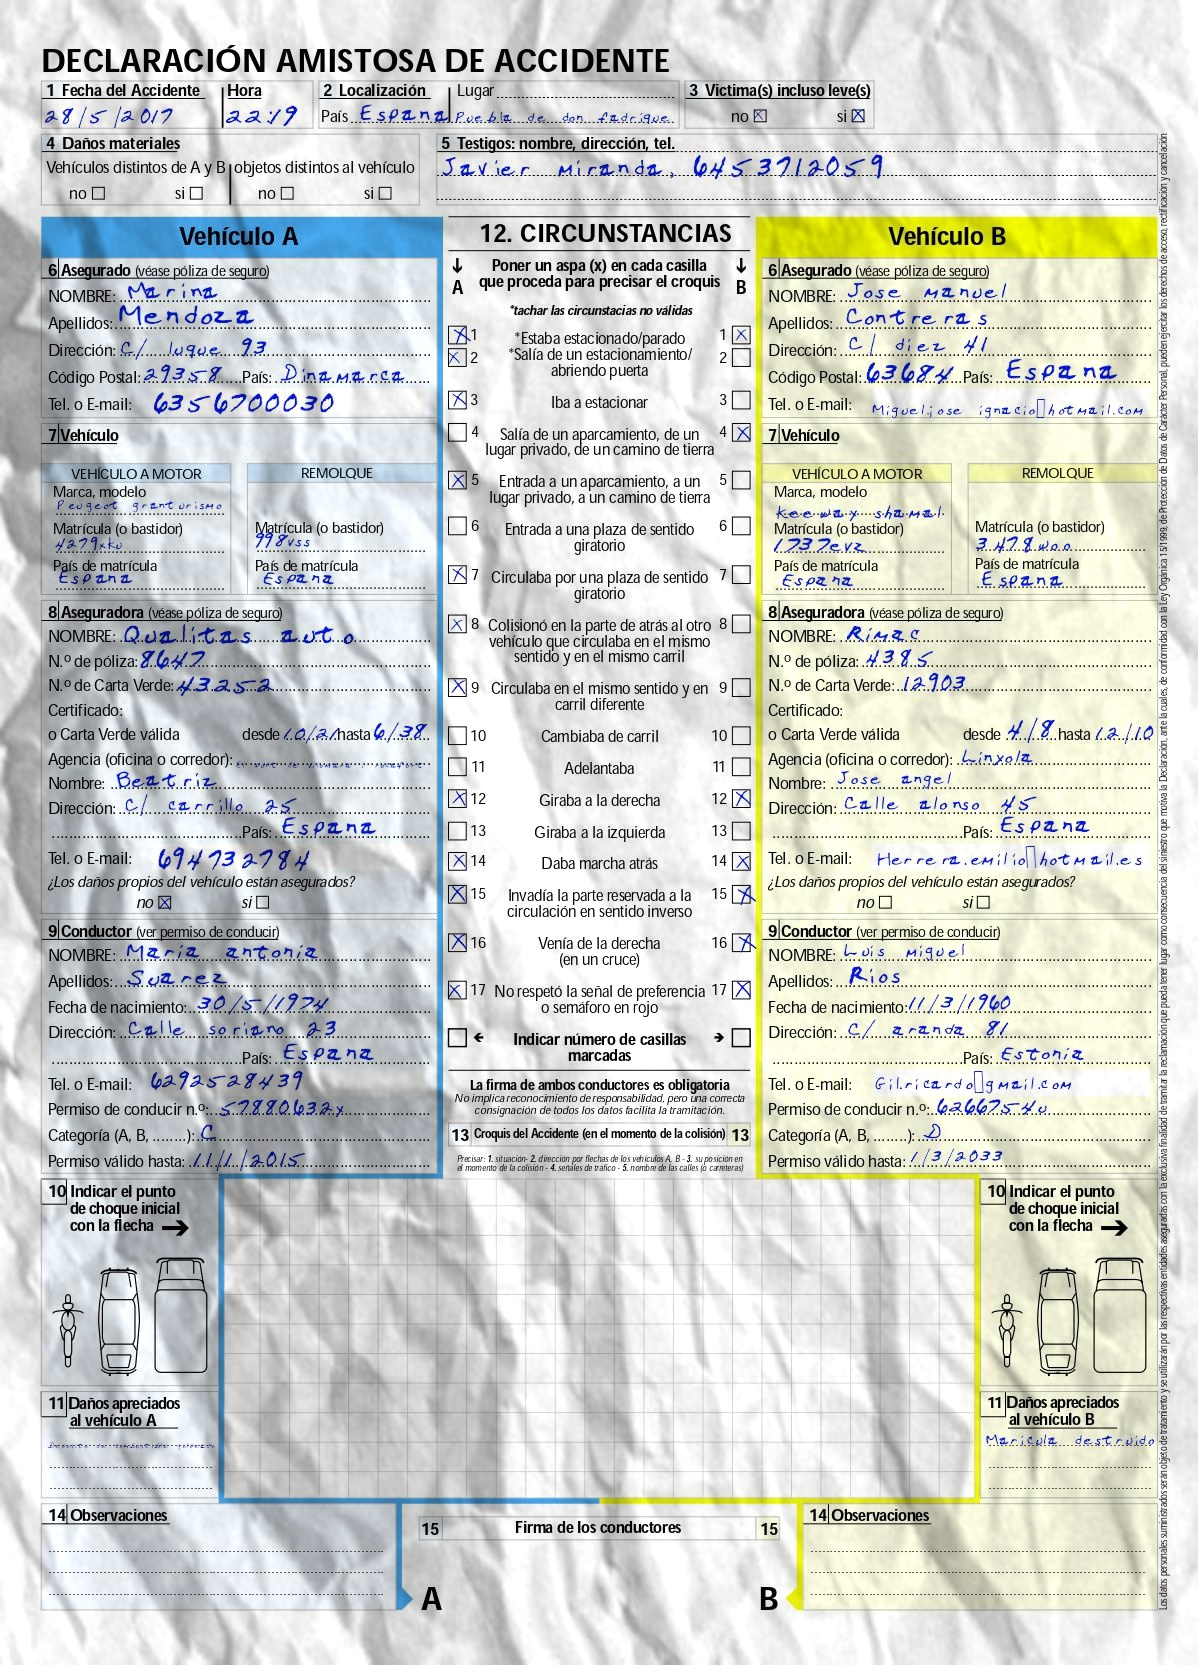 DECLARACIÓN AMISTOSA DE ACCIDENTE
1 Fecha del Accidente Hora 2 Localización Lugar 3 Victima(s) incluso leve(s)
28/5/2017 22:19 País Espana Puebla de don fadrique no ☒ si ☒
4 Daños materiales 5 Testigos: nombre, dirección, tel.
Vehículos distintos de A y B objetos distintos al vehículo Javier miranda, 6453712059
no ☐ si ☐ no ☐ si ☐
Vehículo A
6 Asegurado (véase póliza de seguro)
NOMBRE: Marina
Apellidos: Mendoza
Dirección: C/ luque 93
Código Postal: 29358 País: Dinamarca
Tel. o E-mail: 6356700030
7 Vehículo
VEHÍCULO A MOTOR REMOLQUE
Marca, modelo
Peugeot granturismo
Matrícula (o bastidor) Matrícula (o bastidor)
4279xku 998vss
País de matrícula País de matrícula
Espana Espana
8 Aseguradora (véase póliza de seguro)
NOMBRE: Qualitas auto
N.º de póliza: 8647
N.º de Carta Verde: 43252
Certificado:
o Carta Verde válida desde 10/21 hasta 6/38
Agencia (oficina o corredor):
Nombre: Beatriz
Dirección: C/ carrillo 25
País: Espana
Tel. o E-mail: 694732784
¿Los daños propios del vehículo están asegurados?
no ☒ si ☐
9 Conductor (ver permiso de conducir)
NOMBRE: María antonia
Apellidos: Suarez
Fecha de nacimiento: 30/5/1974
Dirección: Calle soriano 23
País: Espana
Tel. o E-mail: 6292528439
Permiso de conducir n.º: 57880632x
Categoría (A, B, ........): C
Permiso válido hasta: 11/1/2015
12. CIRCUNSTANCIAS
A Poner un aspa (x) en cada casilla B
que proceda para precisar el croquis
*tachar las circunstacias no válidas
☒ 1 *Estaba estacionado/parado 1 ☒
☒ 2 *Salía de un estacionamiento/ 2 ☐
abriendo puerta
☒ 3 Iba a estacionar 3 ☐
☐ 4 Salía de un aparcamiento, de un 4 ☒
lugar privado, de un camino de tierra
☒ 5 Entrada a un aparcamiento, a un 5 ☐
lugar privado, a un camino de tierra
☐ 6 Entrada a una plaza de sentido 6 ☐
giratorio
☒ 7 Circulaba por una plaza de sentido 7 ☐
giratorio
☒ 8 Colisionó en la parte de atrás al otro 8 ☐
vehículo que circulaba en el mismo
sentido y en el mismo carril
☒ 9 Circulaba en el mismo sentido y en 9 ☐
carril diferente
☐ 10 Cambiaba de carril 10 ☐
☐ 11 Adelantaba 11 ☐
☒ 12 Giraba a la derecha 12 ☒
☐ 13 Giraba a la izquierda 13 ☐
☒ 14 Daba marcha atrás 14 ☒
☒ 15 Invadía la parte reservada a la 15 ☒
circulación en sentido inverso
☒ 16 Venía de la derecha 16 ☒
(en un cruce)
☒ 17 No respetó la señal de preferencia 17 ☒
o semáforo en rojo
☐ Indicar número de casillas ☐
marcadas
La firma de ambos conductores es obligatoria
No implica reconocimiento de responsabilidad, pero una correcta
consignación de todos los datos facilita la tramitación.
13 Croquis del Accidente (en el momento de la colisión) 13
Precisar: 1. situación- 2. dirección por flechas de los vehículos A, B - 3. su posición en
el momento de la colisión - 4. señales de tráfico - 5. nombre de las calles (ó carreteras)
Vehículo B
6 Asegurado (véase póliza de seguro)
NOMBRE: Jose manuel
Apellidos: Contreras
Dirección: C/ diez 41
Código Postal: 63684 País: Espana
Tel. o E-mail: Migueljose ignacio▯hotmail.com
7 Vehículo
VEHÍCULO A MOTOR REMOLQUE
Marca, modelo
Keeway shamal
Matrícula (o bastidor) Matrícula (o bastidor)
1737evz 3478woo
País de matrícula País de matrícula
Espana Espana
8 Aseguradora (véase póliza de seguro)
NOMBRE: Rimac
N.º de póliza: 4385
N.º de Carta Verde: 12903
Certificado:
o Carta Verde válida desde 4/8 hasta 12/10
Agencia (oficina o corredor): Linxola
Nombre: Jose angel
Dirección: Calle alonso 45
País: Espana
Tel. o E-mail: Herrera.emilio▯hotmail.es
¿Los daños propios del vehículo están asegurados?
no ☐ si ☐
9 Conductor (ver permiso de conducir)
NOMBRE: Luis miguel
Apellidos: Ríos
Fecha de nacimiento: 11/3/1960
Dirección: C/ aranda 81
País: Estonia
Tel. o E-mail: Gilricardo▯gmail.com
Permiso de conducir n.º: 6266754u
Categoría (A, B, ........): D
Permiso válido hasta: 1/3/2033
10 Indicar el punto
de choque inicial
con la flecha
11 Daños apreciados
al vehículo A
10 Indicar el punto
de choque inicial
con la flecha
11 Daños apreciados
al vehículo B
Maricula destruido
14 Observaciones
15 Firma de los conductores 15
A B
14 Observaciones
Los datos personales suministrados serán objeto de tratamiento y se utilizarán por las respectivas entidades aseguradas con la exclusiva finalidad de tramitar la reclamación que pueda tener lugar como consecuencia del siniestro que motiva la Declaración, ante la cuales, de conformidad con la Ley Orgánica 15/1999, de Protección de Datos de Carácter Personal, pueden ejercitar los derechos de acceso, rectificación y cancelación